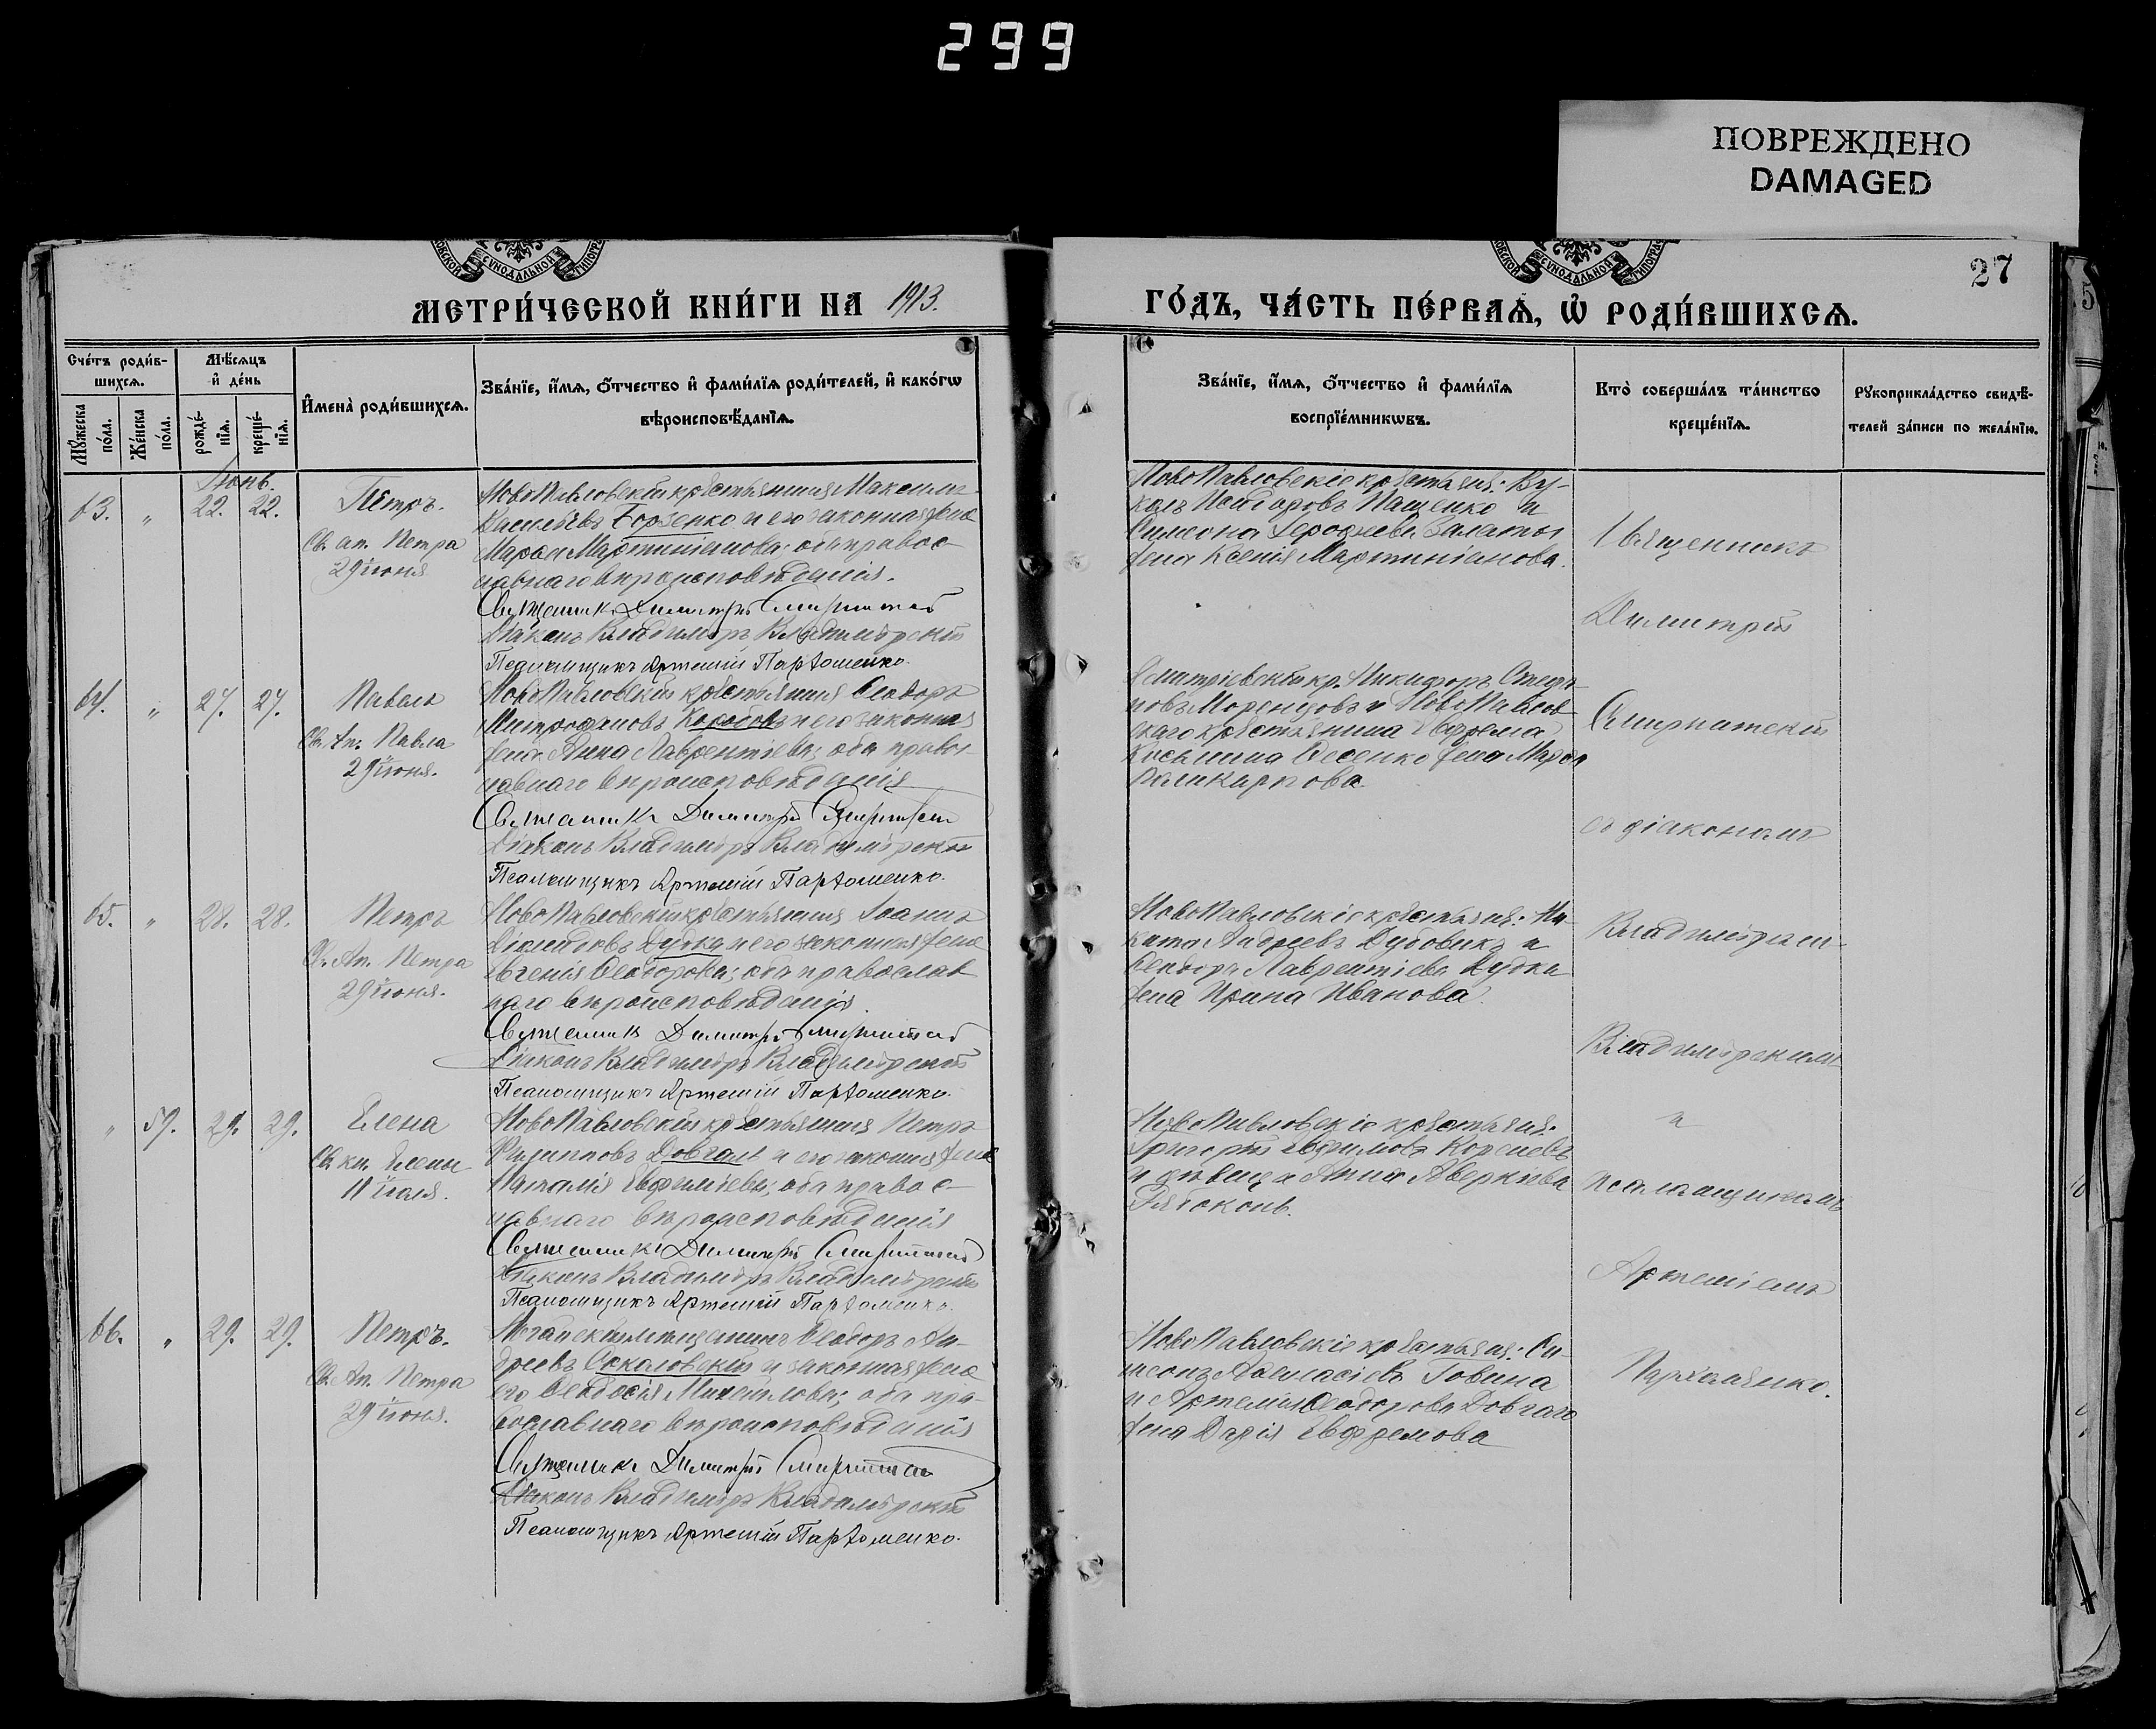 299
ПОВРЕЖДЕНО
DAMAGED
СУНОДАЛЬНОЙ
СУНОДАЛЬНОЙ
27
МЕТРИ́ЧЕСКОЙ КНИ́ГИ НА 1913.
ГО́ДЪ, ЧА́СТЬ ПЕ́РВАѦ, Ѽ РОДИ́ВШИХСѦ.
Сче́тъ роди́в-
шихсѧ.
Мѣ́сѧцъ
и҆ де́нь
Мꙋ́жеска
по́ла.
Же́нска
по́ла.
рожде́-
нїѧ.
креще́-
нїѧ.
И҆мена̀ роди́вшихсѧ.
Зва́нїе, и҆́мѧ, ѻ҆́тчество и҆ фами́лїѧ роди́телей, и҆ како́гѡ
вѣроисповѣ́данїѧ.
Зва́нїе, и҆́мѧ, ѻ҆́тчество и҆ фами́лїѧ
воспрїе́мникѡвъ.
Кто̀ соверша́лъ та́инство
креще́нїѧ.
Рꙋкоприкла́дство свидѣ́-
телей за́писи по жела́нїю.
Іюнь.
63. " 22. 22. Петръ.
Св. ап. Петра
29 іюня.
НовоПавловскій крестьянинъ Максимъ
Васильевъ Борзенко и его законная жена
Марѳа Мартиніанова; оба правос-
лавнаго вѣроисповѣданія.
Священникъ Димитрій
Діаконъ Владиміръ Владимірскій
Псаломщикъ Артемій Пархоменко.
НовоПавловскіе крестьяне: Ву-
колъ Исидоровъ Пащенко и
Симеона
жена Ксенія Мартиніанова.
Священникъ
Димитрій
64. " 27. 27. Павелъ
Св. Ап. Павла
29 іюня.
НовоПавловскій крестьянинъ Ѳеодоръ
Митрофановъ и его законная
жена Анна Лаврентьева; оба правос-
лавнаго вѣроисповѣданія
Священникъ Димитрій
Діаконъ Владиміръ Владимірскій
Псаломщикъ Артемій Пархоменко.
кр. Никифоръ
и НовоПавлов-
скаго крестьянина Ефрема
Косьмина жена Марѳа
Поликарпова.
съ діакономъ
65. " 28. 28. Петръ
Св. Ап. Петра
29 іюня.
НовоПавловскій крестьянинъ Іоаннъ
Дудка и его законная жена
Евгенія Ѳеодорова; оба православ
наго вѣроисповѣданія.
Священникъ Димитрій
Діаконъ Владиміръ Владимірскій
Псаломщикъ Артемій Пархоменко.
НовоПавловскіе крестьяне: Ни-
кита Андреевъ Дубовикъ и
Ѳеодора Лаврентіева Дудки
жена Ирина Иванова.
Владиміром-
Владимірскимъ
" 59. 29. 29. Елена
Св. кн. Елены
11 іюля.
НовоПавловскій крестьянинъ Петръ
Филипповъ Довгаль и его законная жена
Наталія Евфиміева; оба правос-
лавнаго вѣроисповѣданія
Священникъ Димитрій
Діаконъ Владиміръ Владимірскій
Псаломщикъ Артемій Пархоменко.
НовоПавловскіе крестьяне:
Григорій Евфимовъ
и дѣвица Анна Аверкіева
и
псаломщикомъ
Артеміемъ
66. " 29. 29. Петръ.
Св. Ап. Петра
29 іюня.
мѣщанинъ Ѳеодоръ Ан-
дреевъ Соколовскій и законная жена
его Ѳеодосія Михайлова; оба пра-
вославнаго вѣроисповѣданія
Священникъ Димитрій
Діаконъ Владиміръ Владимірскій
Псаломщикъ Артемій Пархоменко.
НовоПавловскіе крестьяне: Си-
меонъ Аѳанасіевъ
и Артемія Ѳеодорова
жена Дарія Ефремова
Пархоменко.